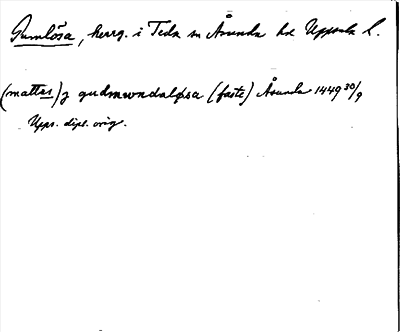 Gumlösa, herrg. i Teda sn Åsunda hd Uppsala l.
(mattes) j gudmwndaløsa (faste) Åsunda 1449 30/9
Upps. dipl. orig.